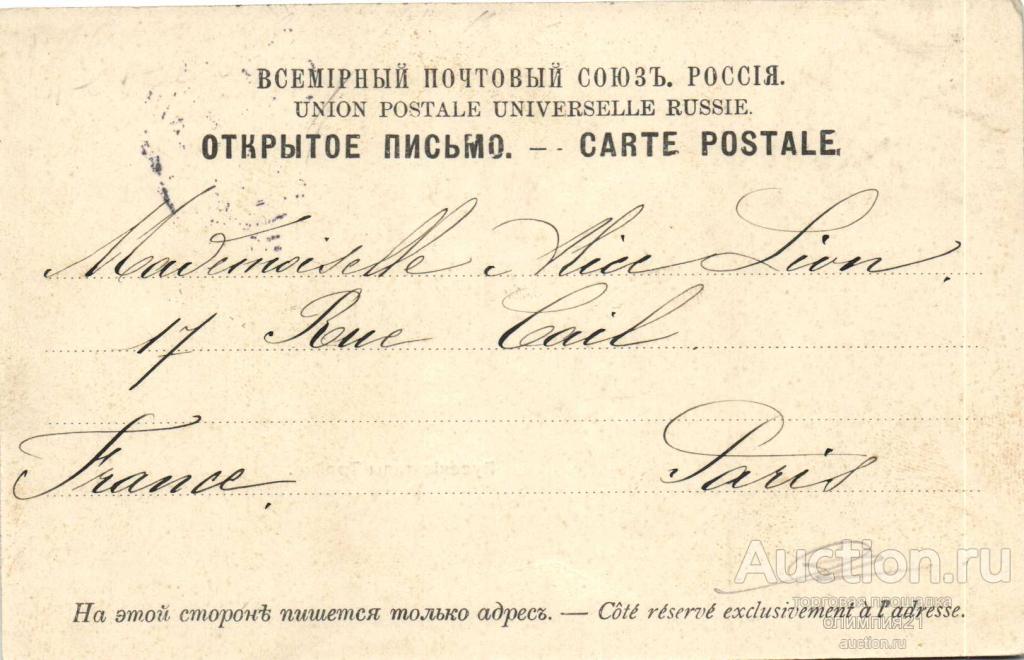 ВСЕМІРНЫЙ ПОЧТОВЫЙ СОЮЗЪ. РОССІЯ.
UNION POSTALE UNIVERSELLE RUSSIE.
ОТКРЫТОЕ ПИСЬМО. — CARTE POSTALE.
Mademoiselle Alice Lion.
17 Rue Cail.
France. Paris
Auction.ru
На этой сторонѣ пишется только адресъ. — Côté réservé exclusivement à l'adresse.
торговая площадка
олимпия21
auction.ru